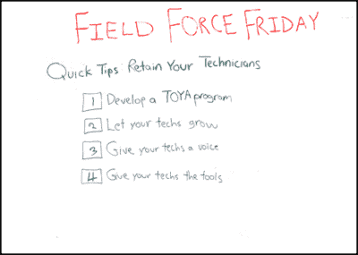 FIELD FORCE FRIDAY
Quick Tips Retain Your Technicians
1 Develop a TOYA program
2 Let your techs grow
3 Give your techs a voice
4 Give your techs the tools